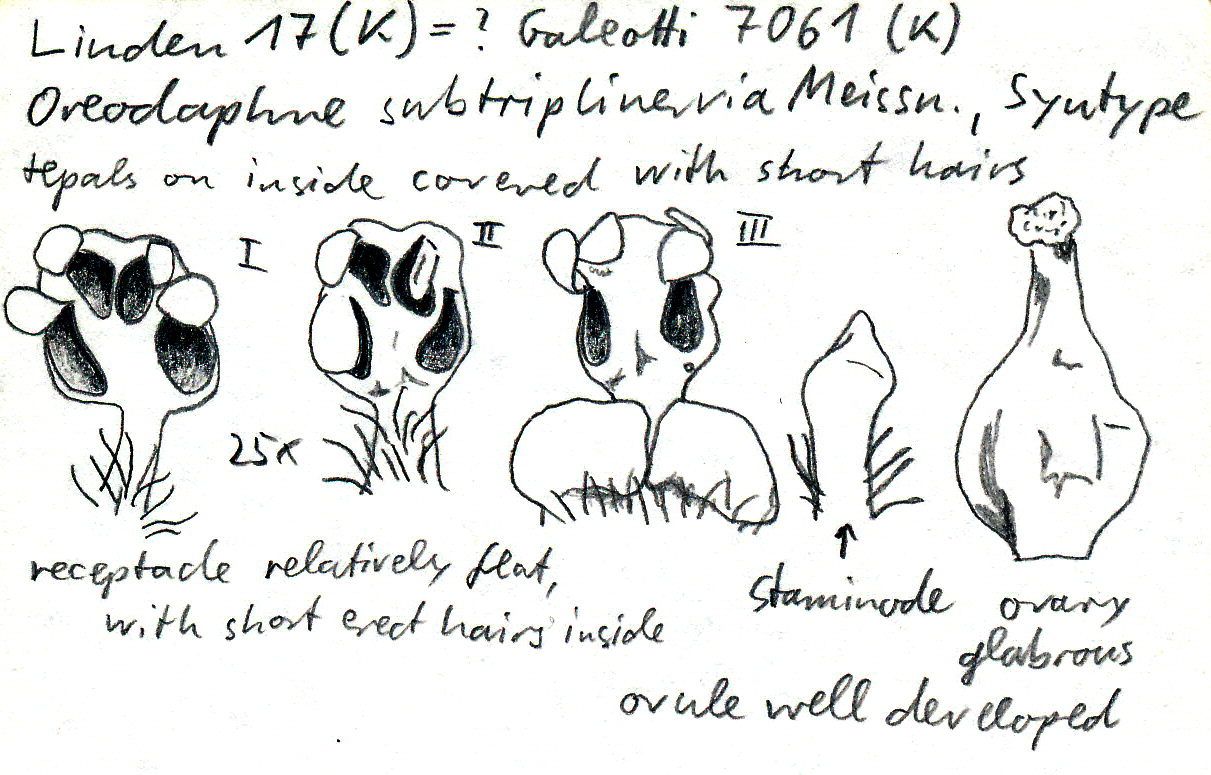 Linden 17 (K) = ? Galeotti 7061 (K)
Oreodaphne subtriplinervia Meissn., Syntype
tepals on inside covered with short hairs
I II III
25x
receptacle relatively flat,
with short erect hairs inside
staminode ovary
glabrous
ovule well developed